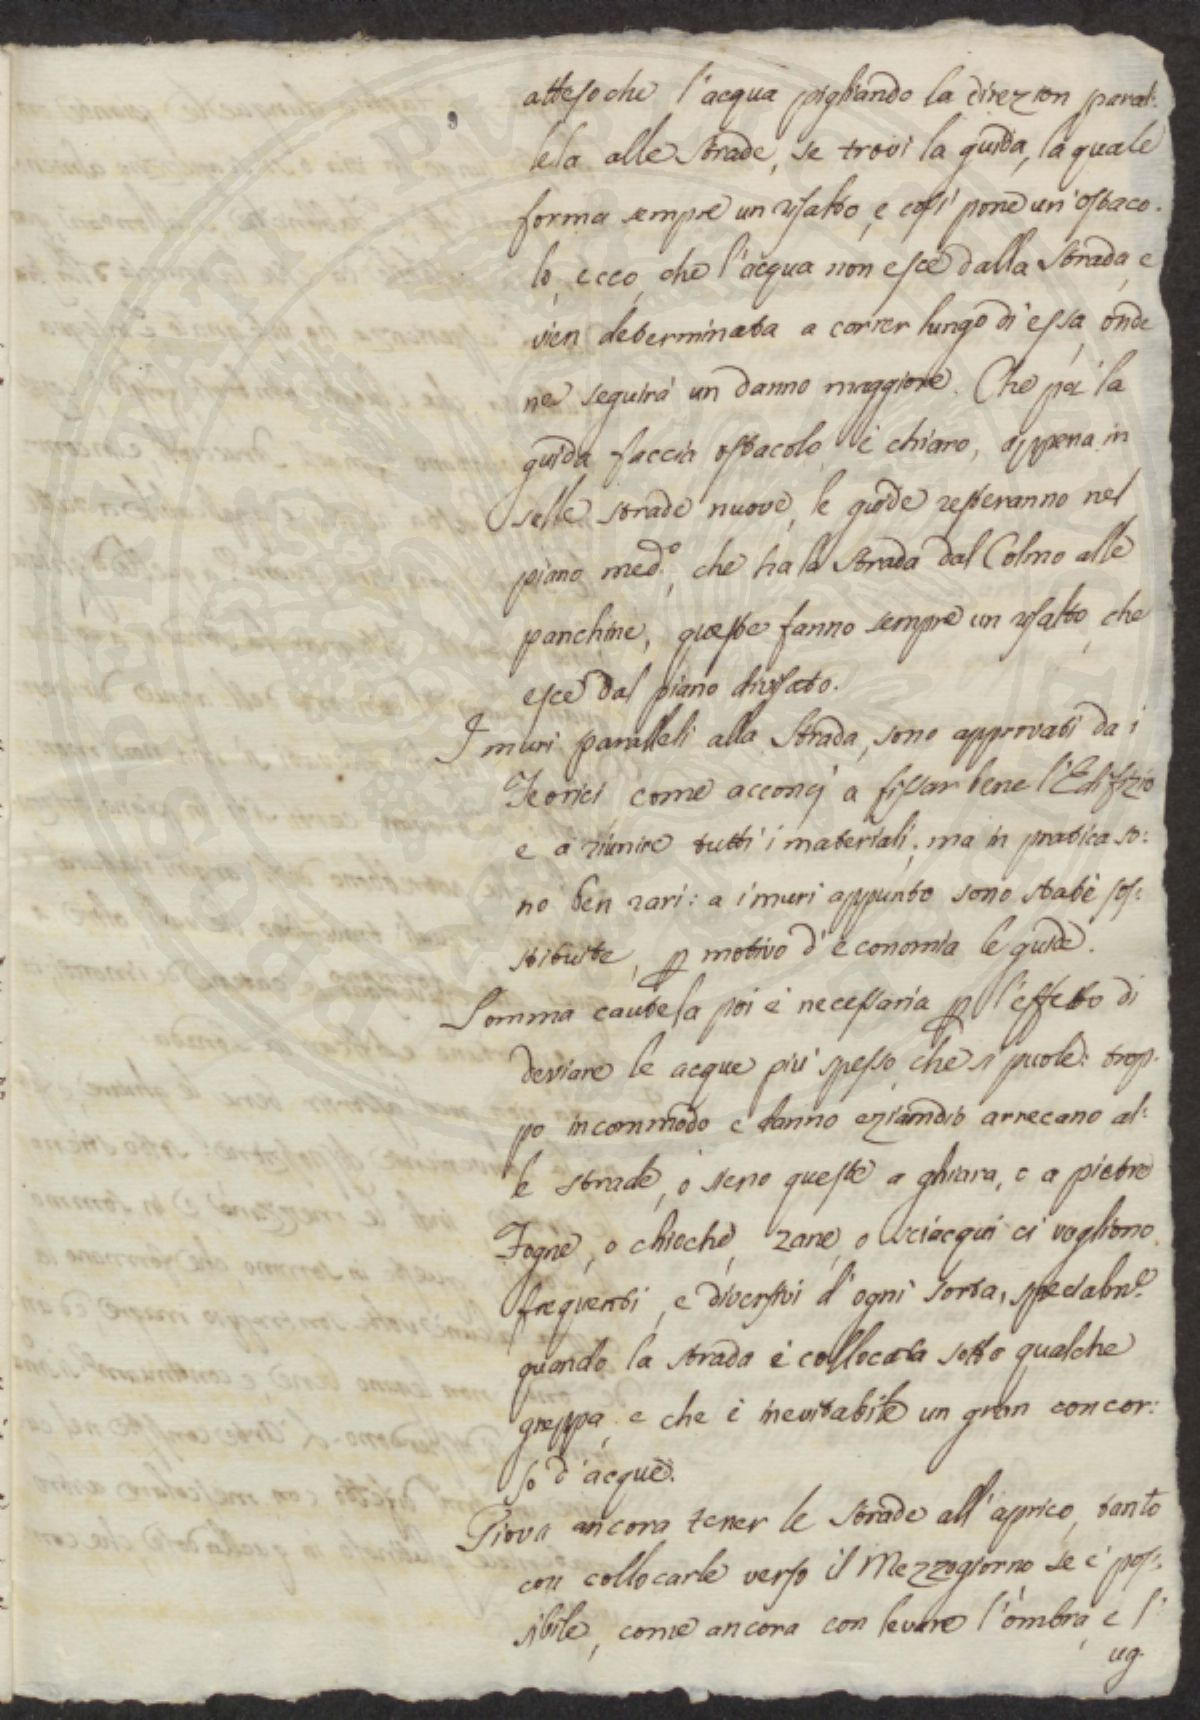 attesoche l'acqua pigliando la direzion paral:
lela alle strade, se trovi la guida, la quale
forma sempre un risalto, e così pone un'ostaco:
lo, ecco, che l'acqua non esce dalla strada, e
vien determinata a correr lungo di essa, onde
ne seguirà un danno maggiore. Che poi la
guida faccia ostacolo è chiaro, appena in
selle strade nuove, le guide resteranno nel
piano med.º, che ha la strada dal Colmo alle
panchine, queste fanno sempre un risalto, che
esce dal piano divisato.
I muri paralleli alla Strada, sono approvati da i
Teorici come acconcj a fissar bene l'Edifizio
e a riunire tutti i materiali; ma in pratica so:
no ben rari: a i muri appunto sono state sos:
stituite, p motivo d'economia le guide.
Somma cautela poi è necessaria p l'effetto di
deviare le acque più spesso, che si puole: trop:
po incommodo e danno eziandio arrecano al:
le strade, o sieno queste a ghiara, o a pietre
Fogne, o chioche, zane, o sciacqui ci vogliono
frequenti, e diversivi d'ogni sorta, specialm.e
quando la strada è collocata sotto qualche
greppa, e che è inevitabile un gran concor:
so d'acque.
Giova ancora tener le strade all'aprico, tanto
con collocarle verso il Mezzogiorno se è pos:
sibile, come ancora con levare l'ombra, e l'
ug.